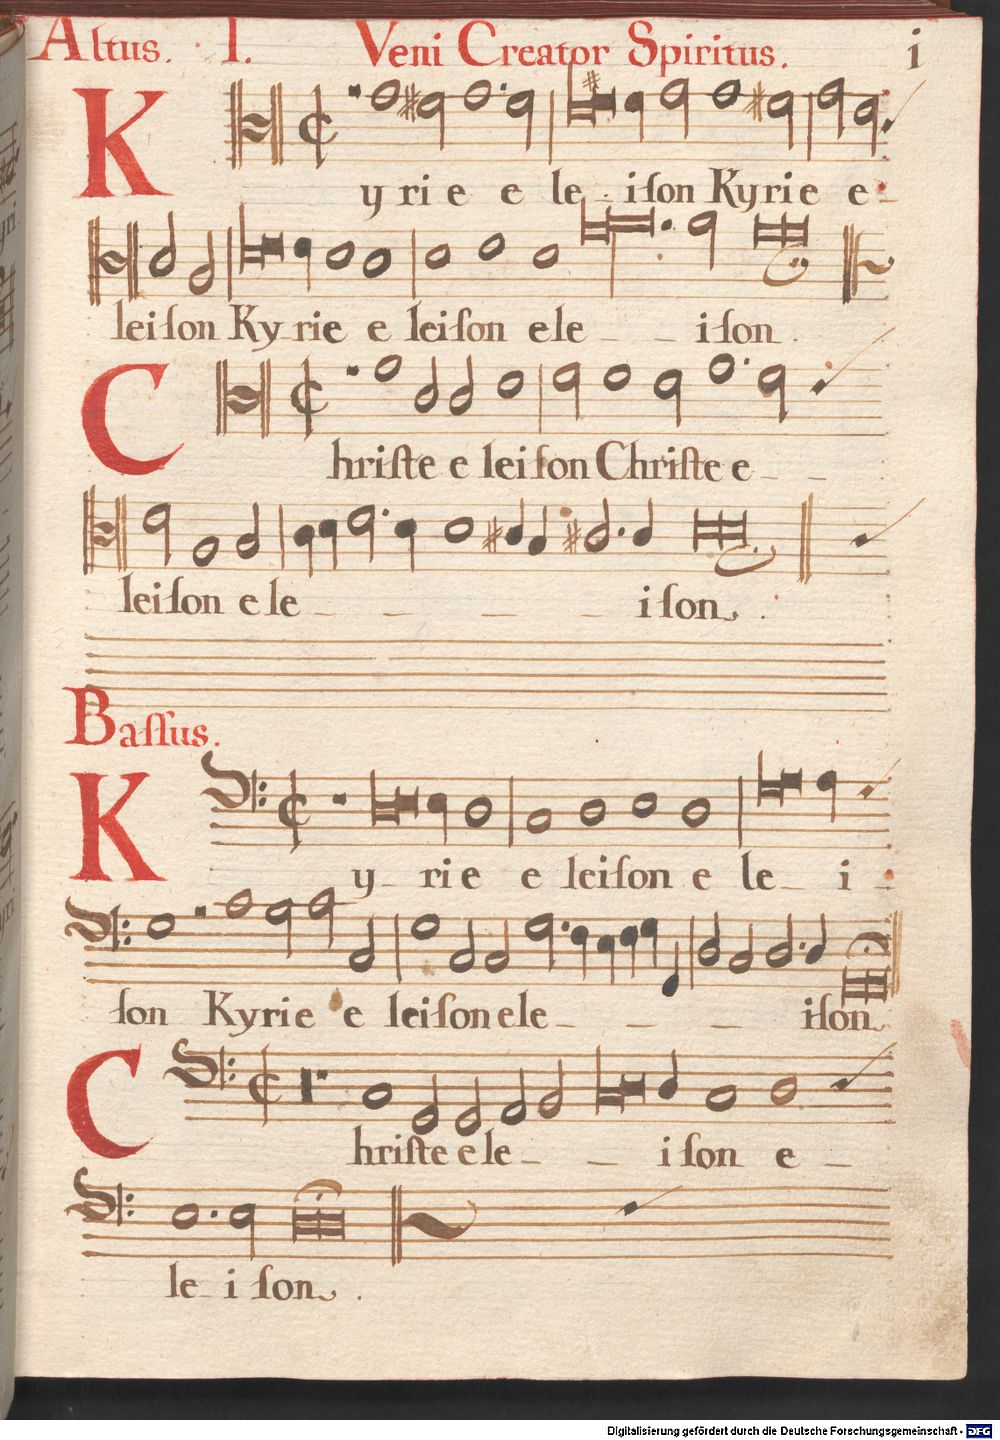 Altus. I. Veni Creator Spiritus. i
K y rie e le iſon Kyrie e
leiſon Kyrie e leiſon ele iſon.
C hriſte e leiſon Chriſte e
leiſon e le iſon.
Baſſus.
K y rie e leiſon e le i
ſon Kyrie e leiſon ele iſon
C hriſte ele iſon e
le i ſon.
Digitalisierung gefördert durch die Deutsche Forschungsgemeinschaft - DFG